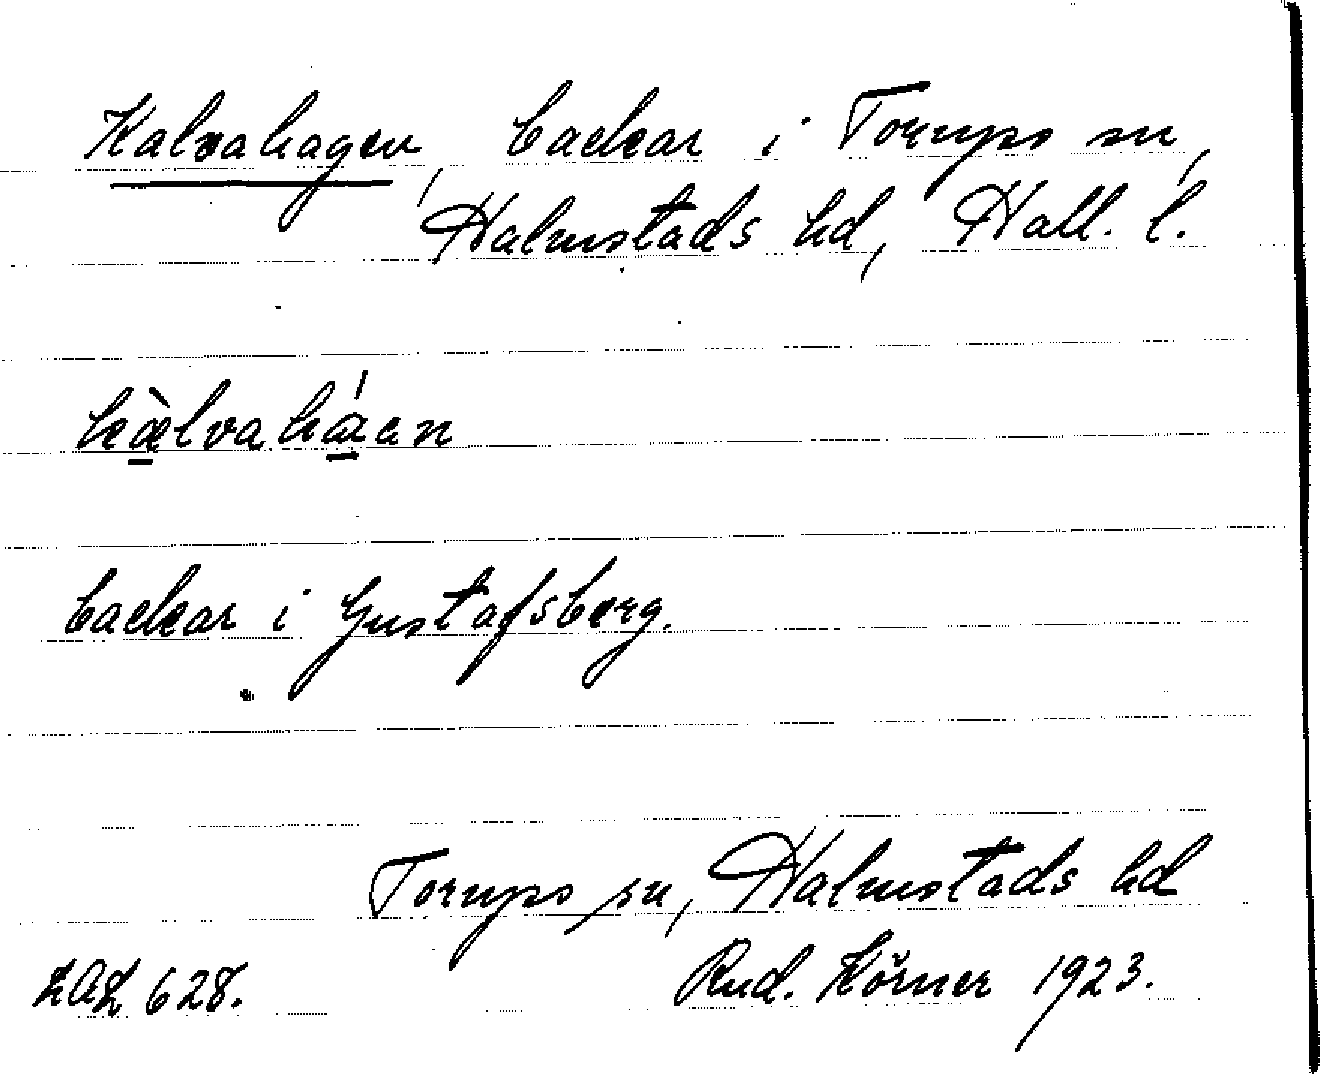 Kalvahagen, backar i Torups sn,
Halmstads hd, Hall. l.
kàlvaháan
backar i Gustafsberg.
Torups sn, Halmstads hd
LAL 628. Rud. Körner 1923.